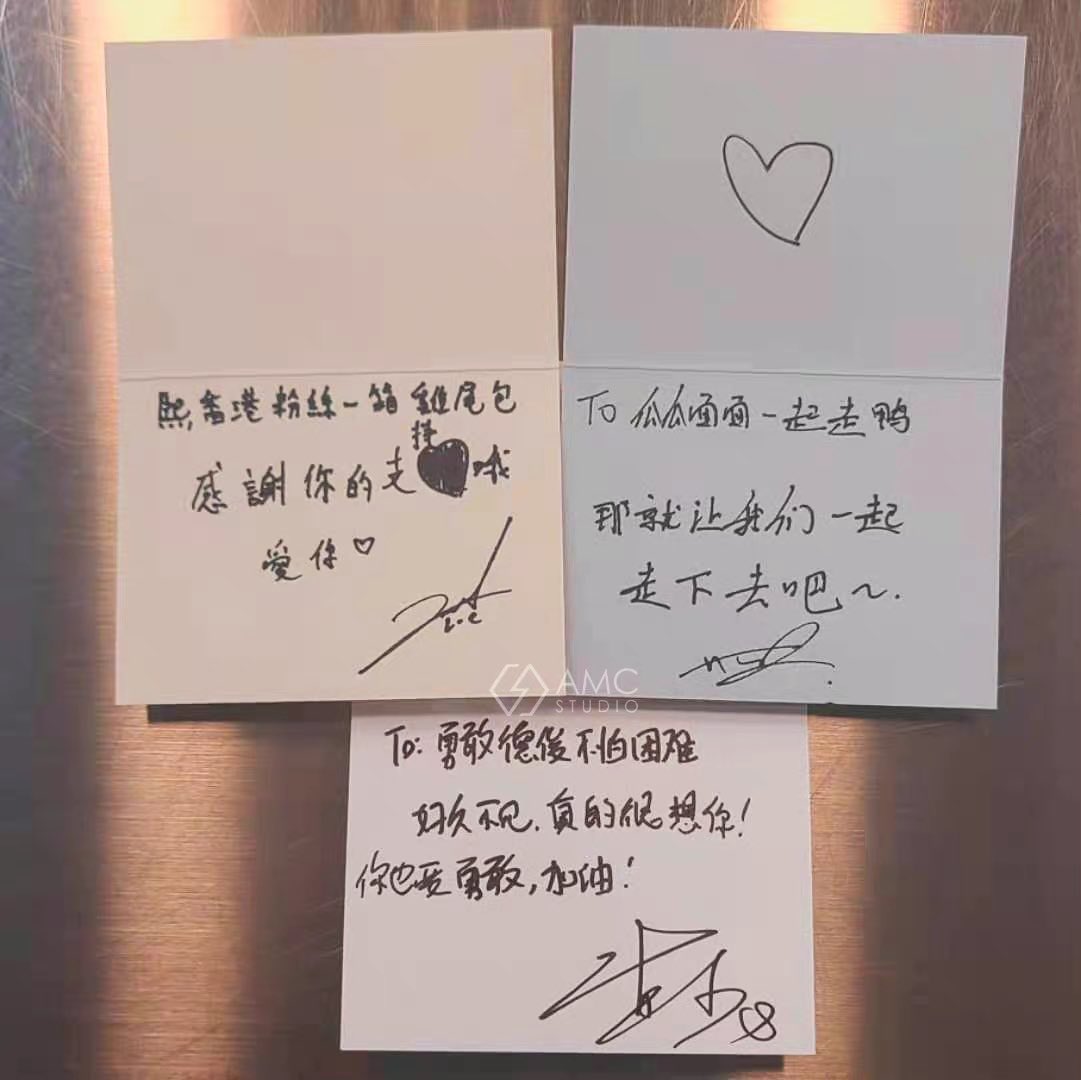 熙香港粉絲一箱雞尾包
持
感謝你的支哦
愛你♡
To 瓜瓜面面一起走鸭
那就让我们一起
走下去吧~.
AMC
STUDIO
To: 勇敢德俊不怕困难
好久不见,真的很想你!
你也要勇敢,加油!